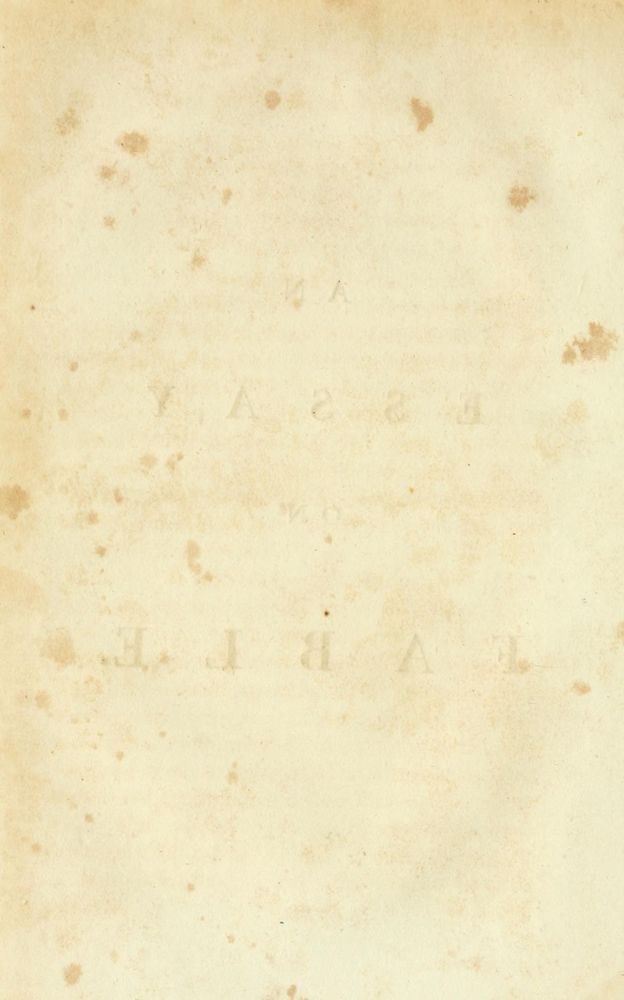 AN
ESSAY
ON
FABLE.